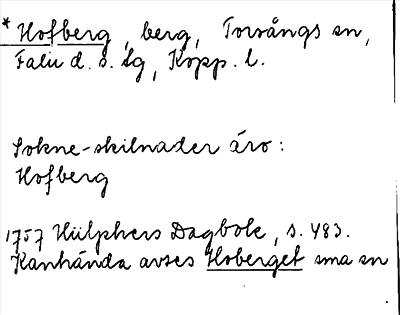 * Hofberg, berg, Torsångs sn,
Falu d. s. tg, Kopp. l.
Sokne-skilnader äro:
Hofberg
1757 Hülphers Dagbok, s. 483.
Kanhända avses Hoberget sma sn